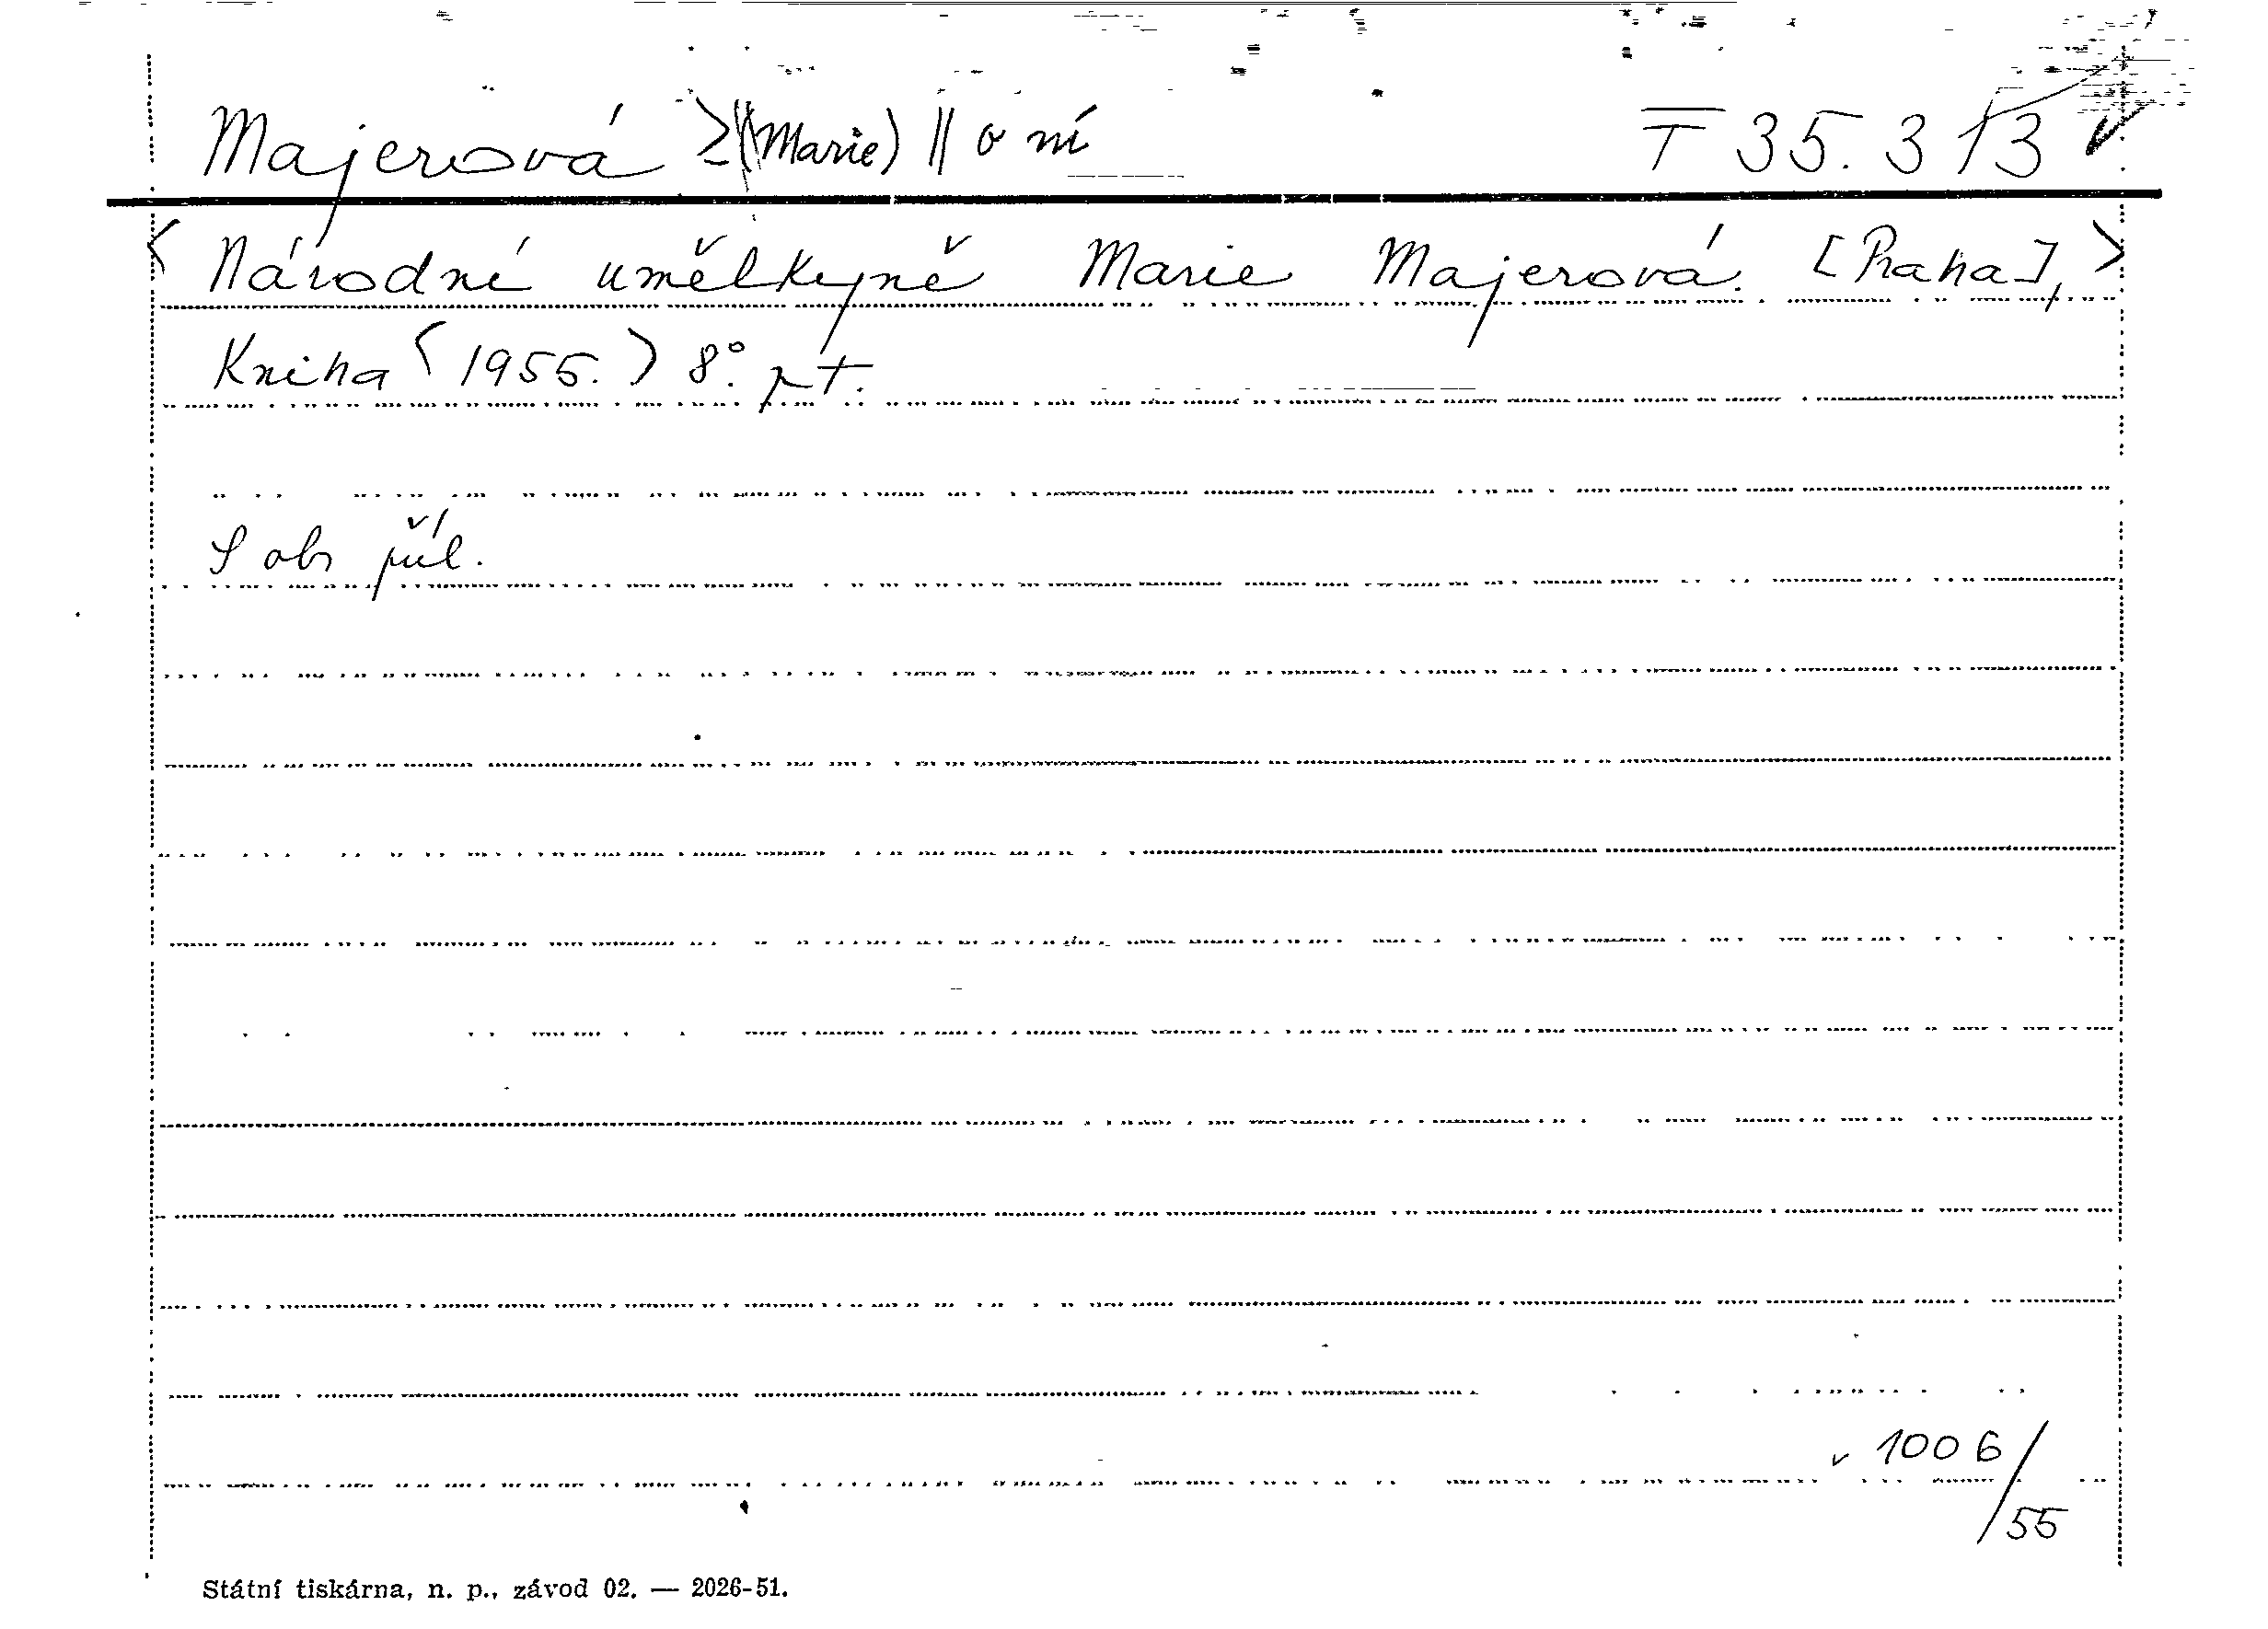 Majerová (Marie) || o ní T 35.313
< Národní umělkyně Marie Majerová. [Praha], >
Kniha <1955.> 8°. pt.
S obr příl.
1006/55
Státní tiskárna, n. p., závod 02. — 2026-51.